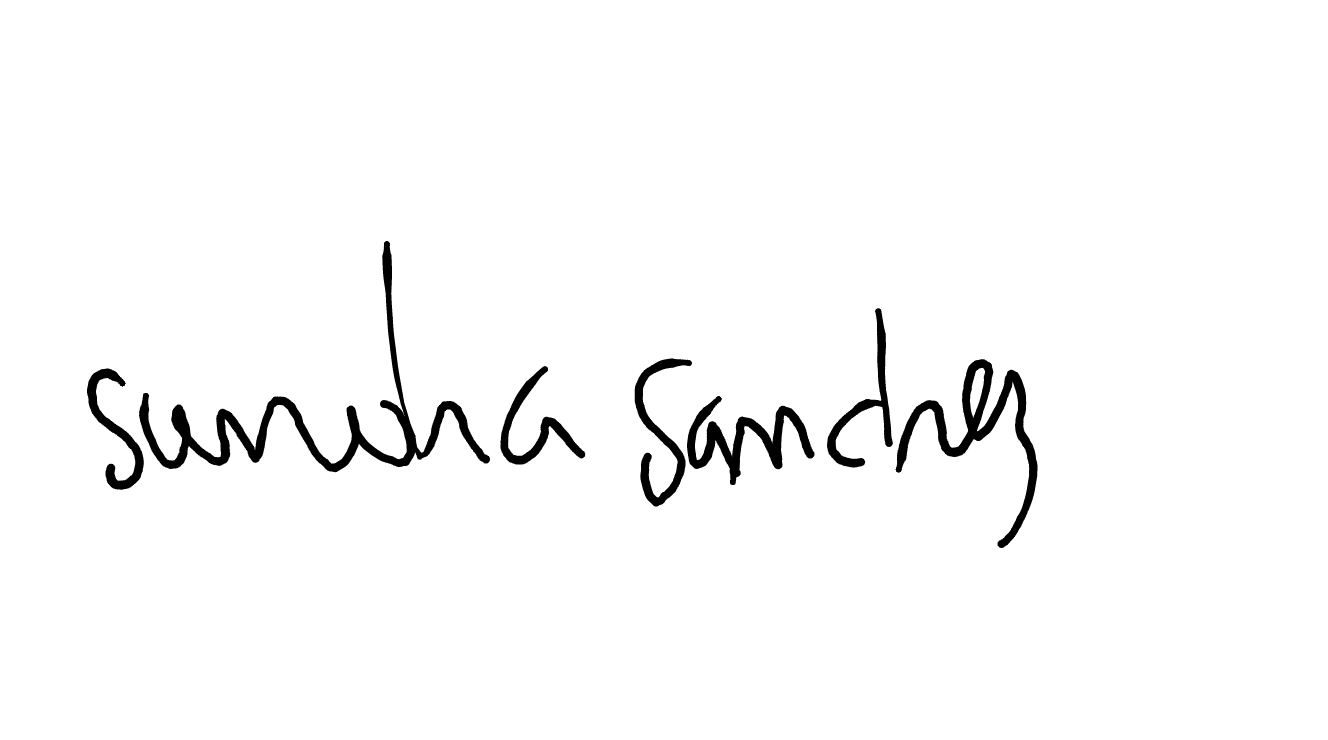 sandra sanchez